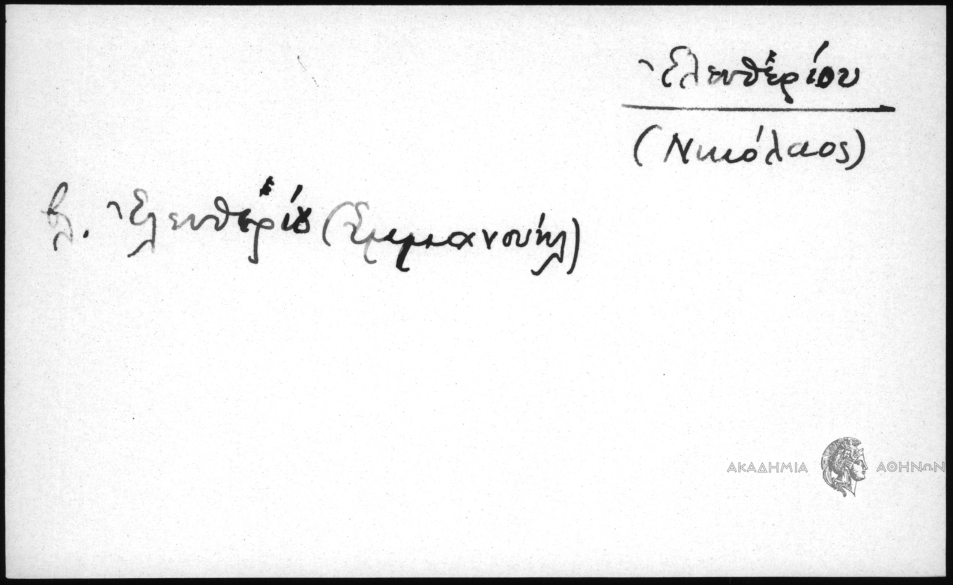 Ἐλευθερίου
(Νικόλαος)
βλ. Ἐλευθερίου (Ἐμμανουήλ)
ΑΚΑΔΗΜΙΑ ΑΘΗΝΩΝ